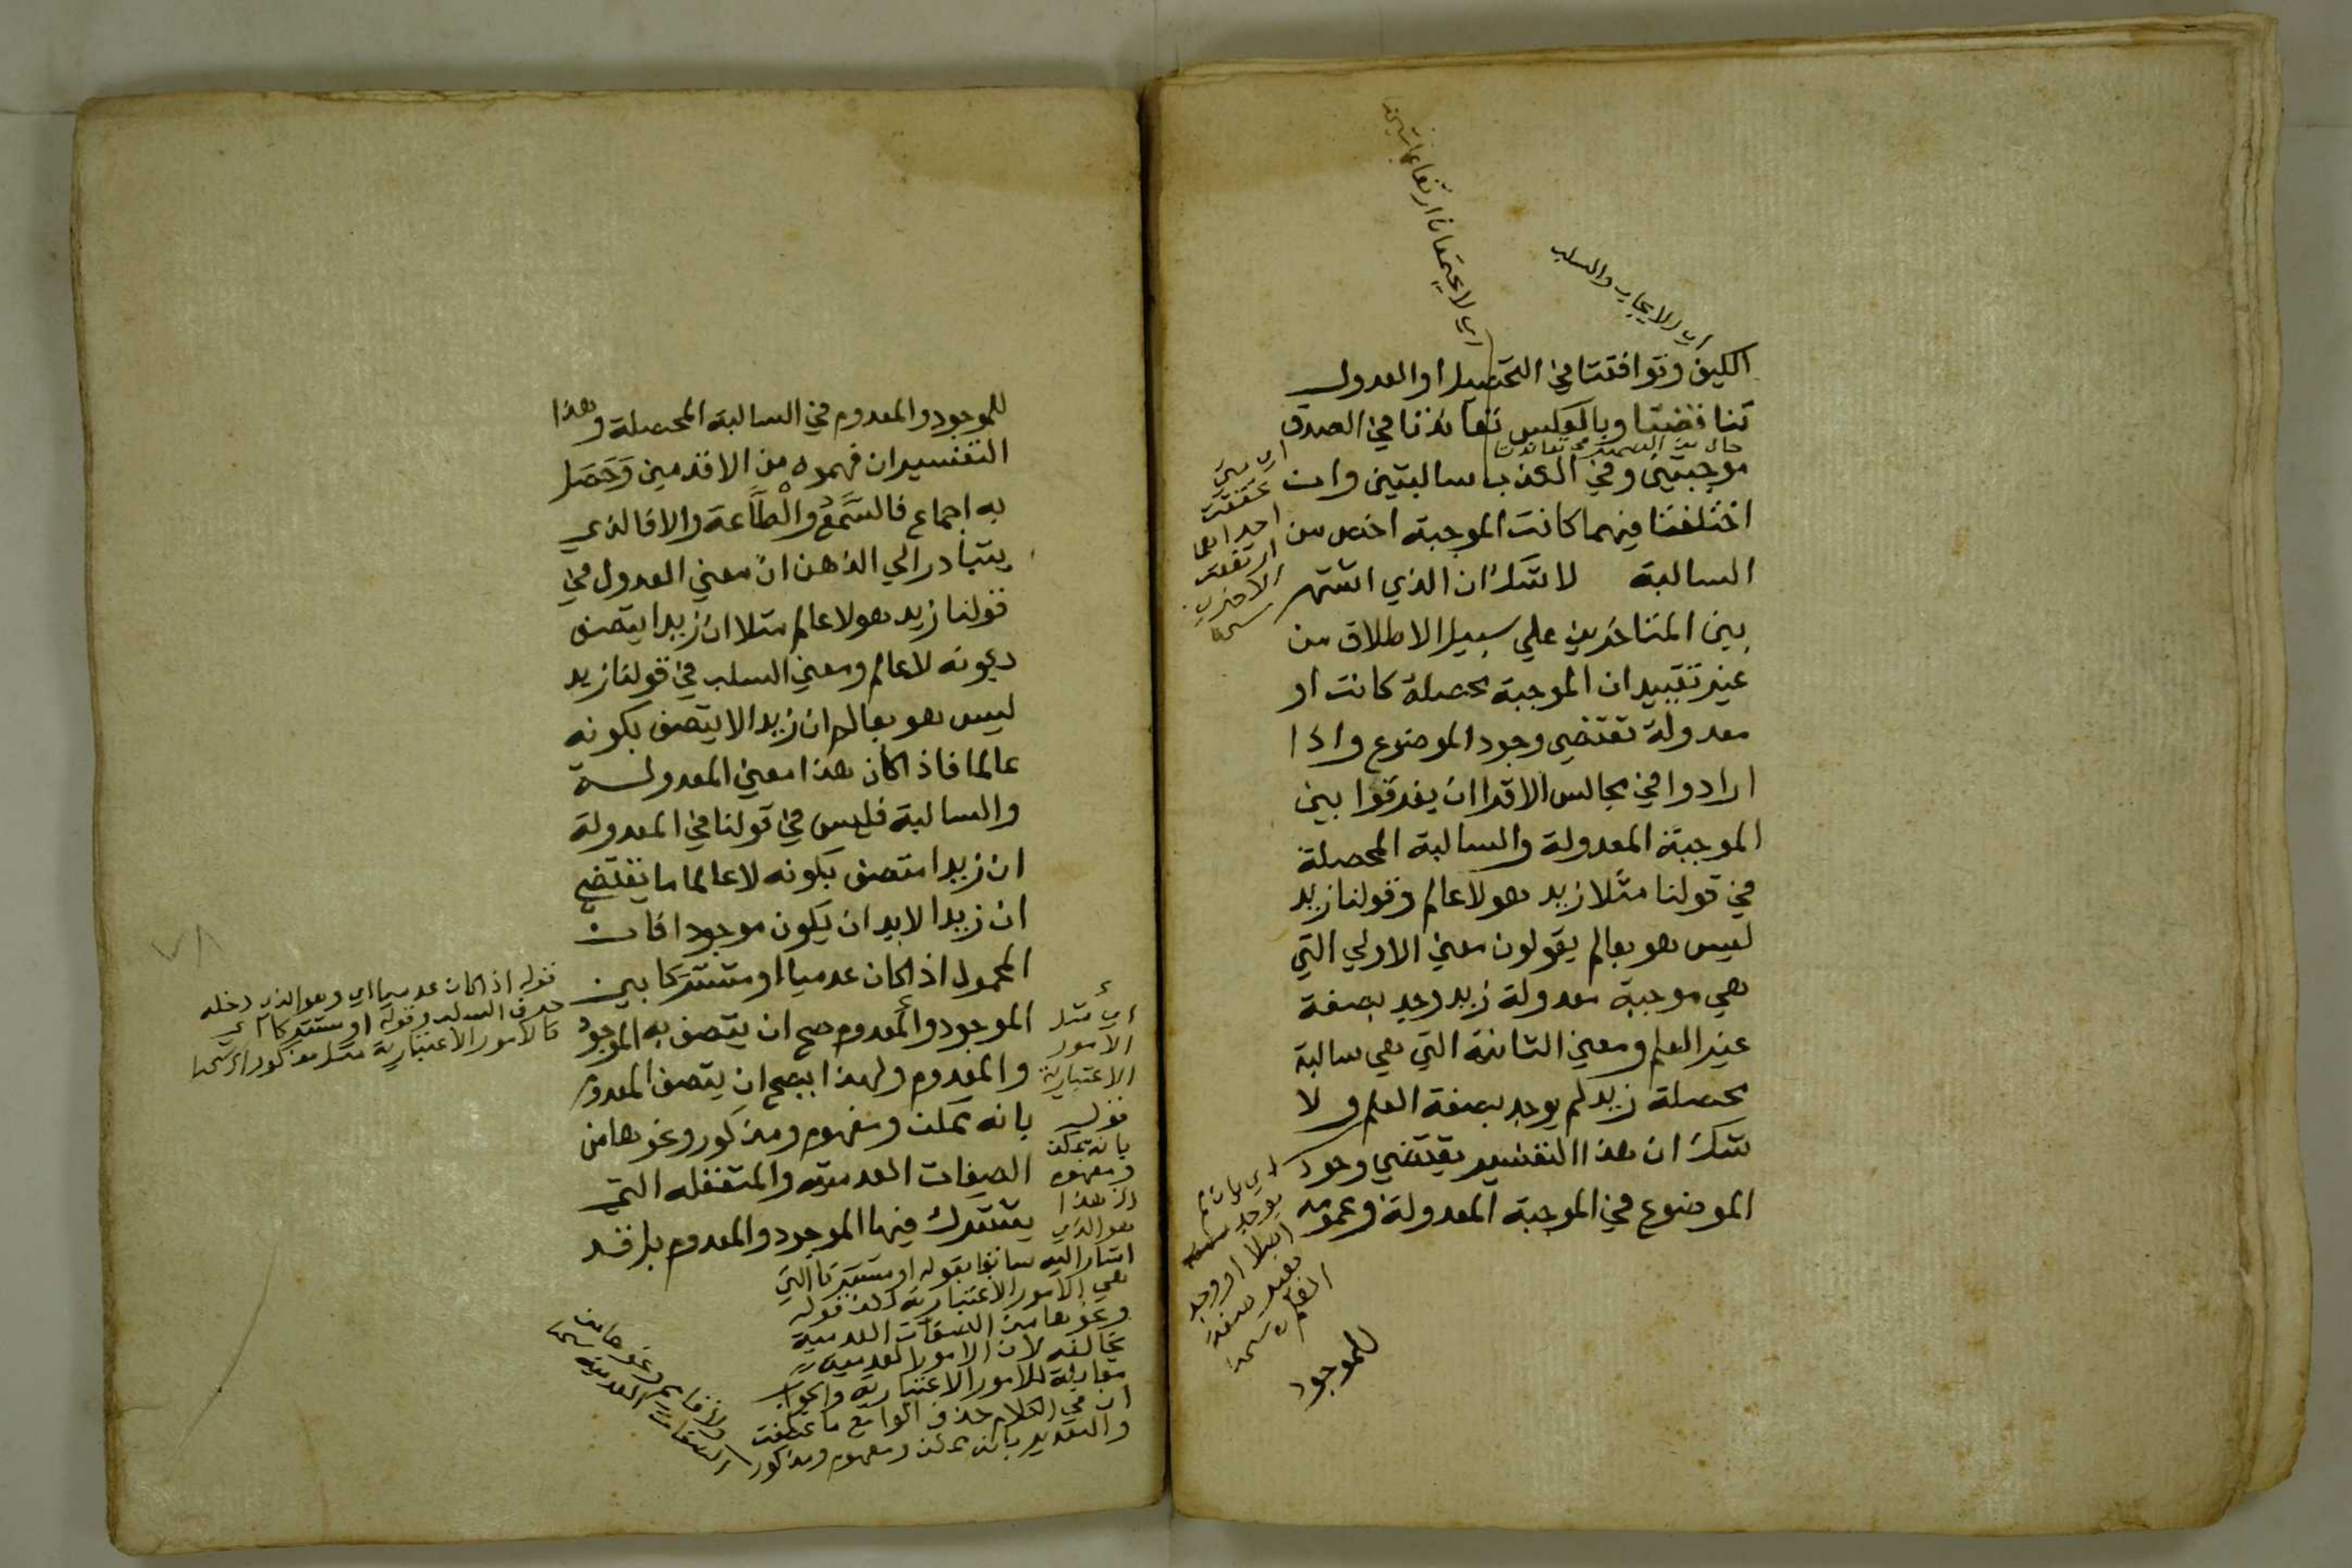 اي لا يجتمعان ارتفاعا
اي الايجاب والسلب
الكيف وتوافقتا في التحصيل او العدول
تناقضتا وبالعكس تعاندتا في الصدق
موجبتين وفي الكذب سالبتين وان
اختلفتا فيهما كانت الموجبة اخص من
السالبة لا شك ان الذي اشتهر
بين المتاخرين علي سبيل الاطلاق من
غير تقييد ان الموجبة محصلة كانت او
معدولة تقتضي وجود الموضوع واذا
ارادوا في مجالس الاقرا ان يفرقوا بين
الموجبة المعدولة والسالبة المحصلة
في قولنا مثلا زيد هو لا عالم وقولنا زيد
ليس هو بعالم يقولون معني الاولي التي
هي موجبة معدولة زيد وجد بصفة
غير العلم ومعني الثانية التي هي سالبة
محصلة زيد لم يوجد بصفة العلم ولا
شك ان هذا التفسير يقتضي وجود
الموضوع في الموجبة المعدولة وعمومه
اي متي
تحققت
احداهما
ارتفعت
الاخري
اي بان لم
يوجد
اصلا او وجد
بغير صفة
العلم
للموجود
للموجود والمعدوم في السالبة المحصلة وهذا
التفسير ان فهموه من الاقدمين وَحَصَل
به اجماع فالسَّمعُ والطَّاعة والا فالذي
يتبادر الي الذهن ان معني العدول في
قولنا زيد هو لا عالم مثلا ان زيدا يتصف
بكونه لا عالم ومعني السلب في قولنا زيد
ليس هو بعالم ان زيدا لا يتصف بكونه
عالما فاذا كان هذا معني المعدولة
والسالبة فليس في قولنا في المعدولة
ان زيدا متصف بكونه لا عالما ما يقتضي
ان زيدا لا بد ان يكون موجودا فان
المحمول اذا كان عدميا او مشتركا بين
الموجود والمعدوم صح ان يتصف به الموجود
والمعدوم ولهذا يصح ان يتصف المعدوم
بانه ممكن ومفهوم ومذكور ونحوها من
الصفات العدمية والمتعقله التي
يشترك فيها الموجود والمعدوم بل قد
قوله اذا كان عدميا اي وهو الذي دخله
حرف السلب وقوله او مشتركا اي
كالامور الاعتبارية مثل مذكور
اي مثل
الامور
الاعتبارية
قوله
بانه ممكن
ومفهوم
هذا
هو الذي
اشار اليه سابقا بقوله او مشتركا التي
هي الامور الاعتبارية لكن قوله
ونحوها من الصفات العدمية
يخالفه لان الامور العدمية
مقابلة للامور الاعتبارية والجواب
ان في الكلام حذف الواو مع ما عطفت
والتقدير بانه ممكن ومفهوم ومذكور
ولا قايم ونحوها من
الصفات العدمية